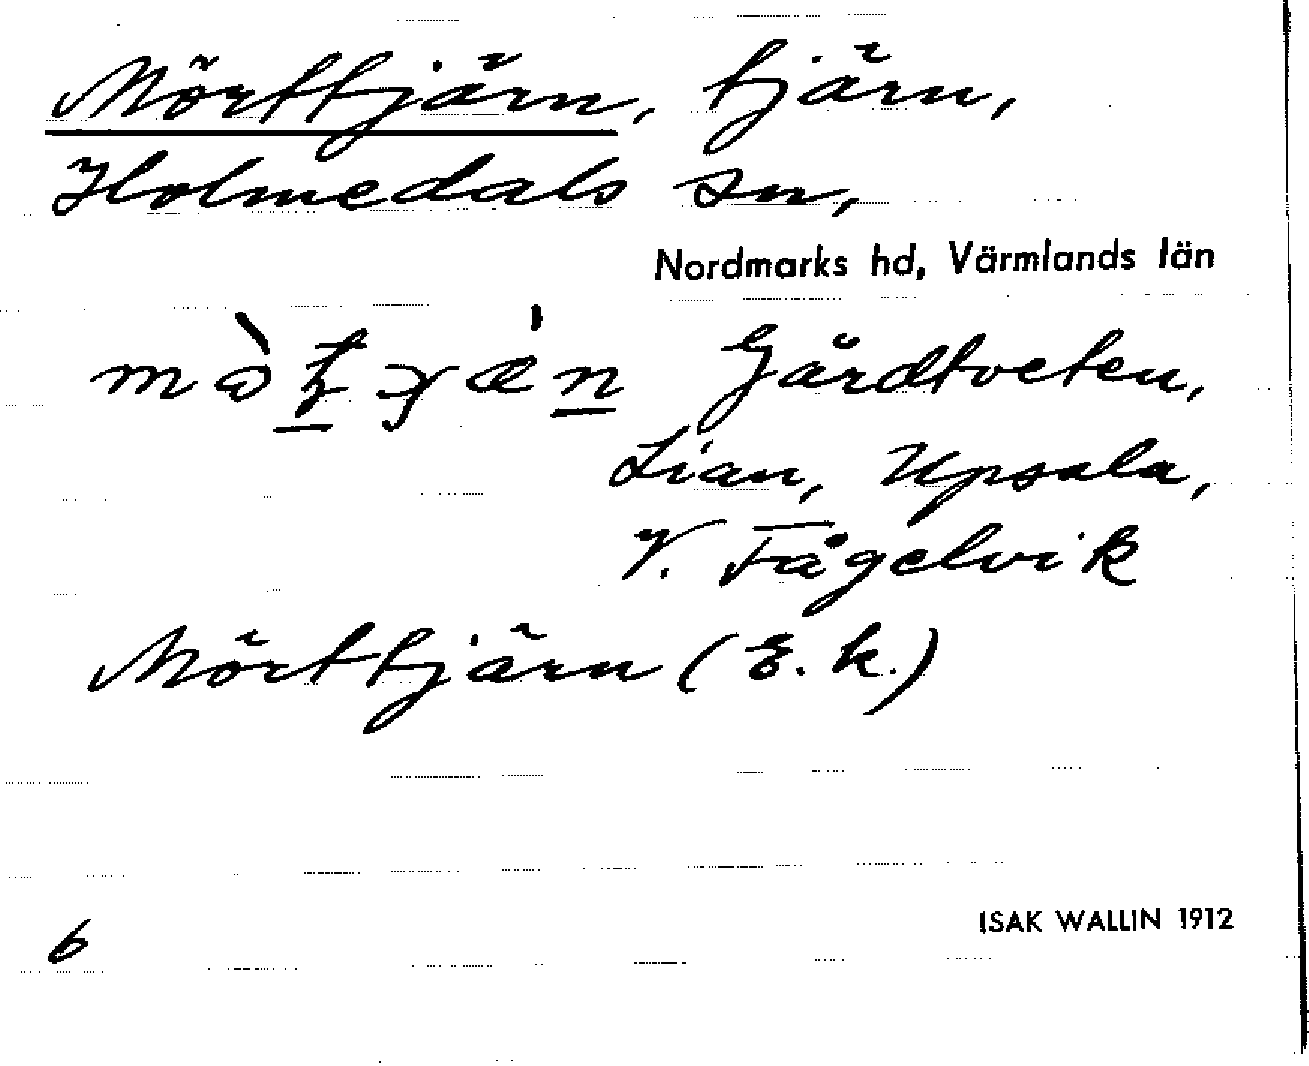 Mörttjärn, tjärn,
Holmedals sn,
Nordmarks hd, Värmlands län
Gårdtveten,
Lian, Upsala,
V. Fågelvik
Mörttjärn (E. k.)
6
ISAK WALLIN 1912